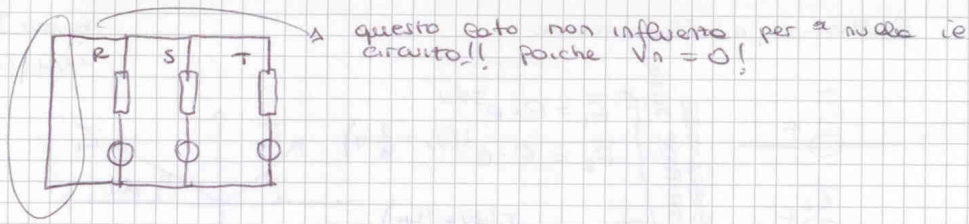 questo lato non influenza per nulla il
circuito!! poiche Vn = 0!
R S T